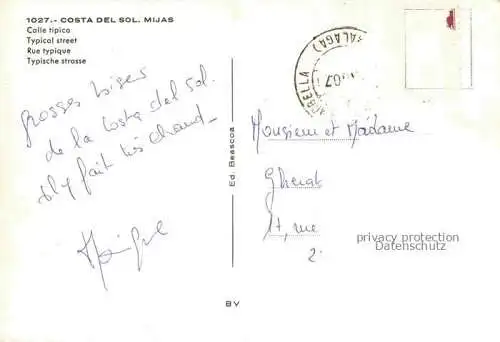 1027.- COSTA DEL SOL. MIJAS
Calle típica
Typical street
Rue typique
Typische strasse
grosses bises
de la Costa del sol.
il y fait très chaud_
Ed. Beascoa
BV
MARBELLA
(MALAGA)
Monsieur et Madame
2.
privacy protection
Datenschutz